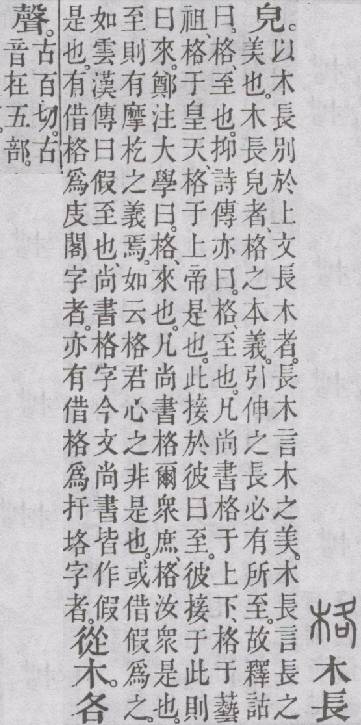 格木長
皃。以木長別於上文長木者。長木言木之美。木長言長之
美也。木長皃者、格之本義。引伸之長必有所至。故釋詁
曰。格、至也。抑詩傳亦曰。格、至也。凡尚書格于上下、格于藝
祖、格于皇天、格于上帝是也。此接於彼曰至。彼接于此則
曰來。鄭注大學曰。格、來也。凡尚書格爾衆庶、格汝衆是也。
至則有摩杚之義焉。如云格君心之非是也。或借假爲之。
如雲漢傳曰假至也、尚書格字今文尚書皆作假
是也。有借格爲庋閣字者。亦有借格爲扞垎字者。從木。各
聲。古百切。古
音在五部。